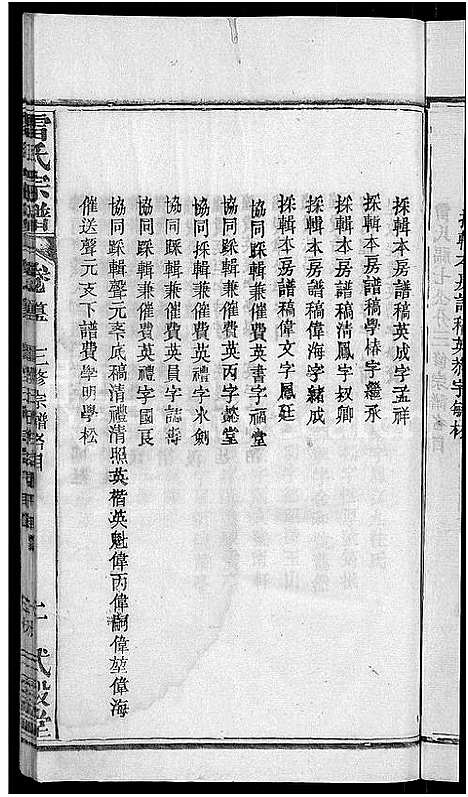 採輯本房譜稿英成字孟祥
採輯本房譜稿學椿字繼承
採輯本房譜稿清鳳字叔卿
採輯本房譜稿偉海字緒成
採輯本房譜稿偉文字鳳廷
協同採輯兼催費英書字福堂
協同踩輯兼催費英丙字懿堂
協同採輯兼催費英榜字氷劍
協同踩輯兼催費英員字誌衡
協同踩輯兼催費英禮字國艮
協同踩輯聲元支底稿清禮清照英楷英魁偉丙偉嗣偉堃偉海
催送聲元支下譜費學明學松
雷氏宗譜
三修宗譜